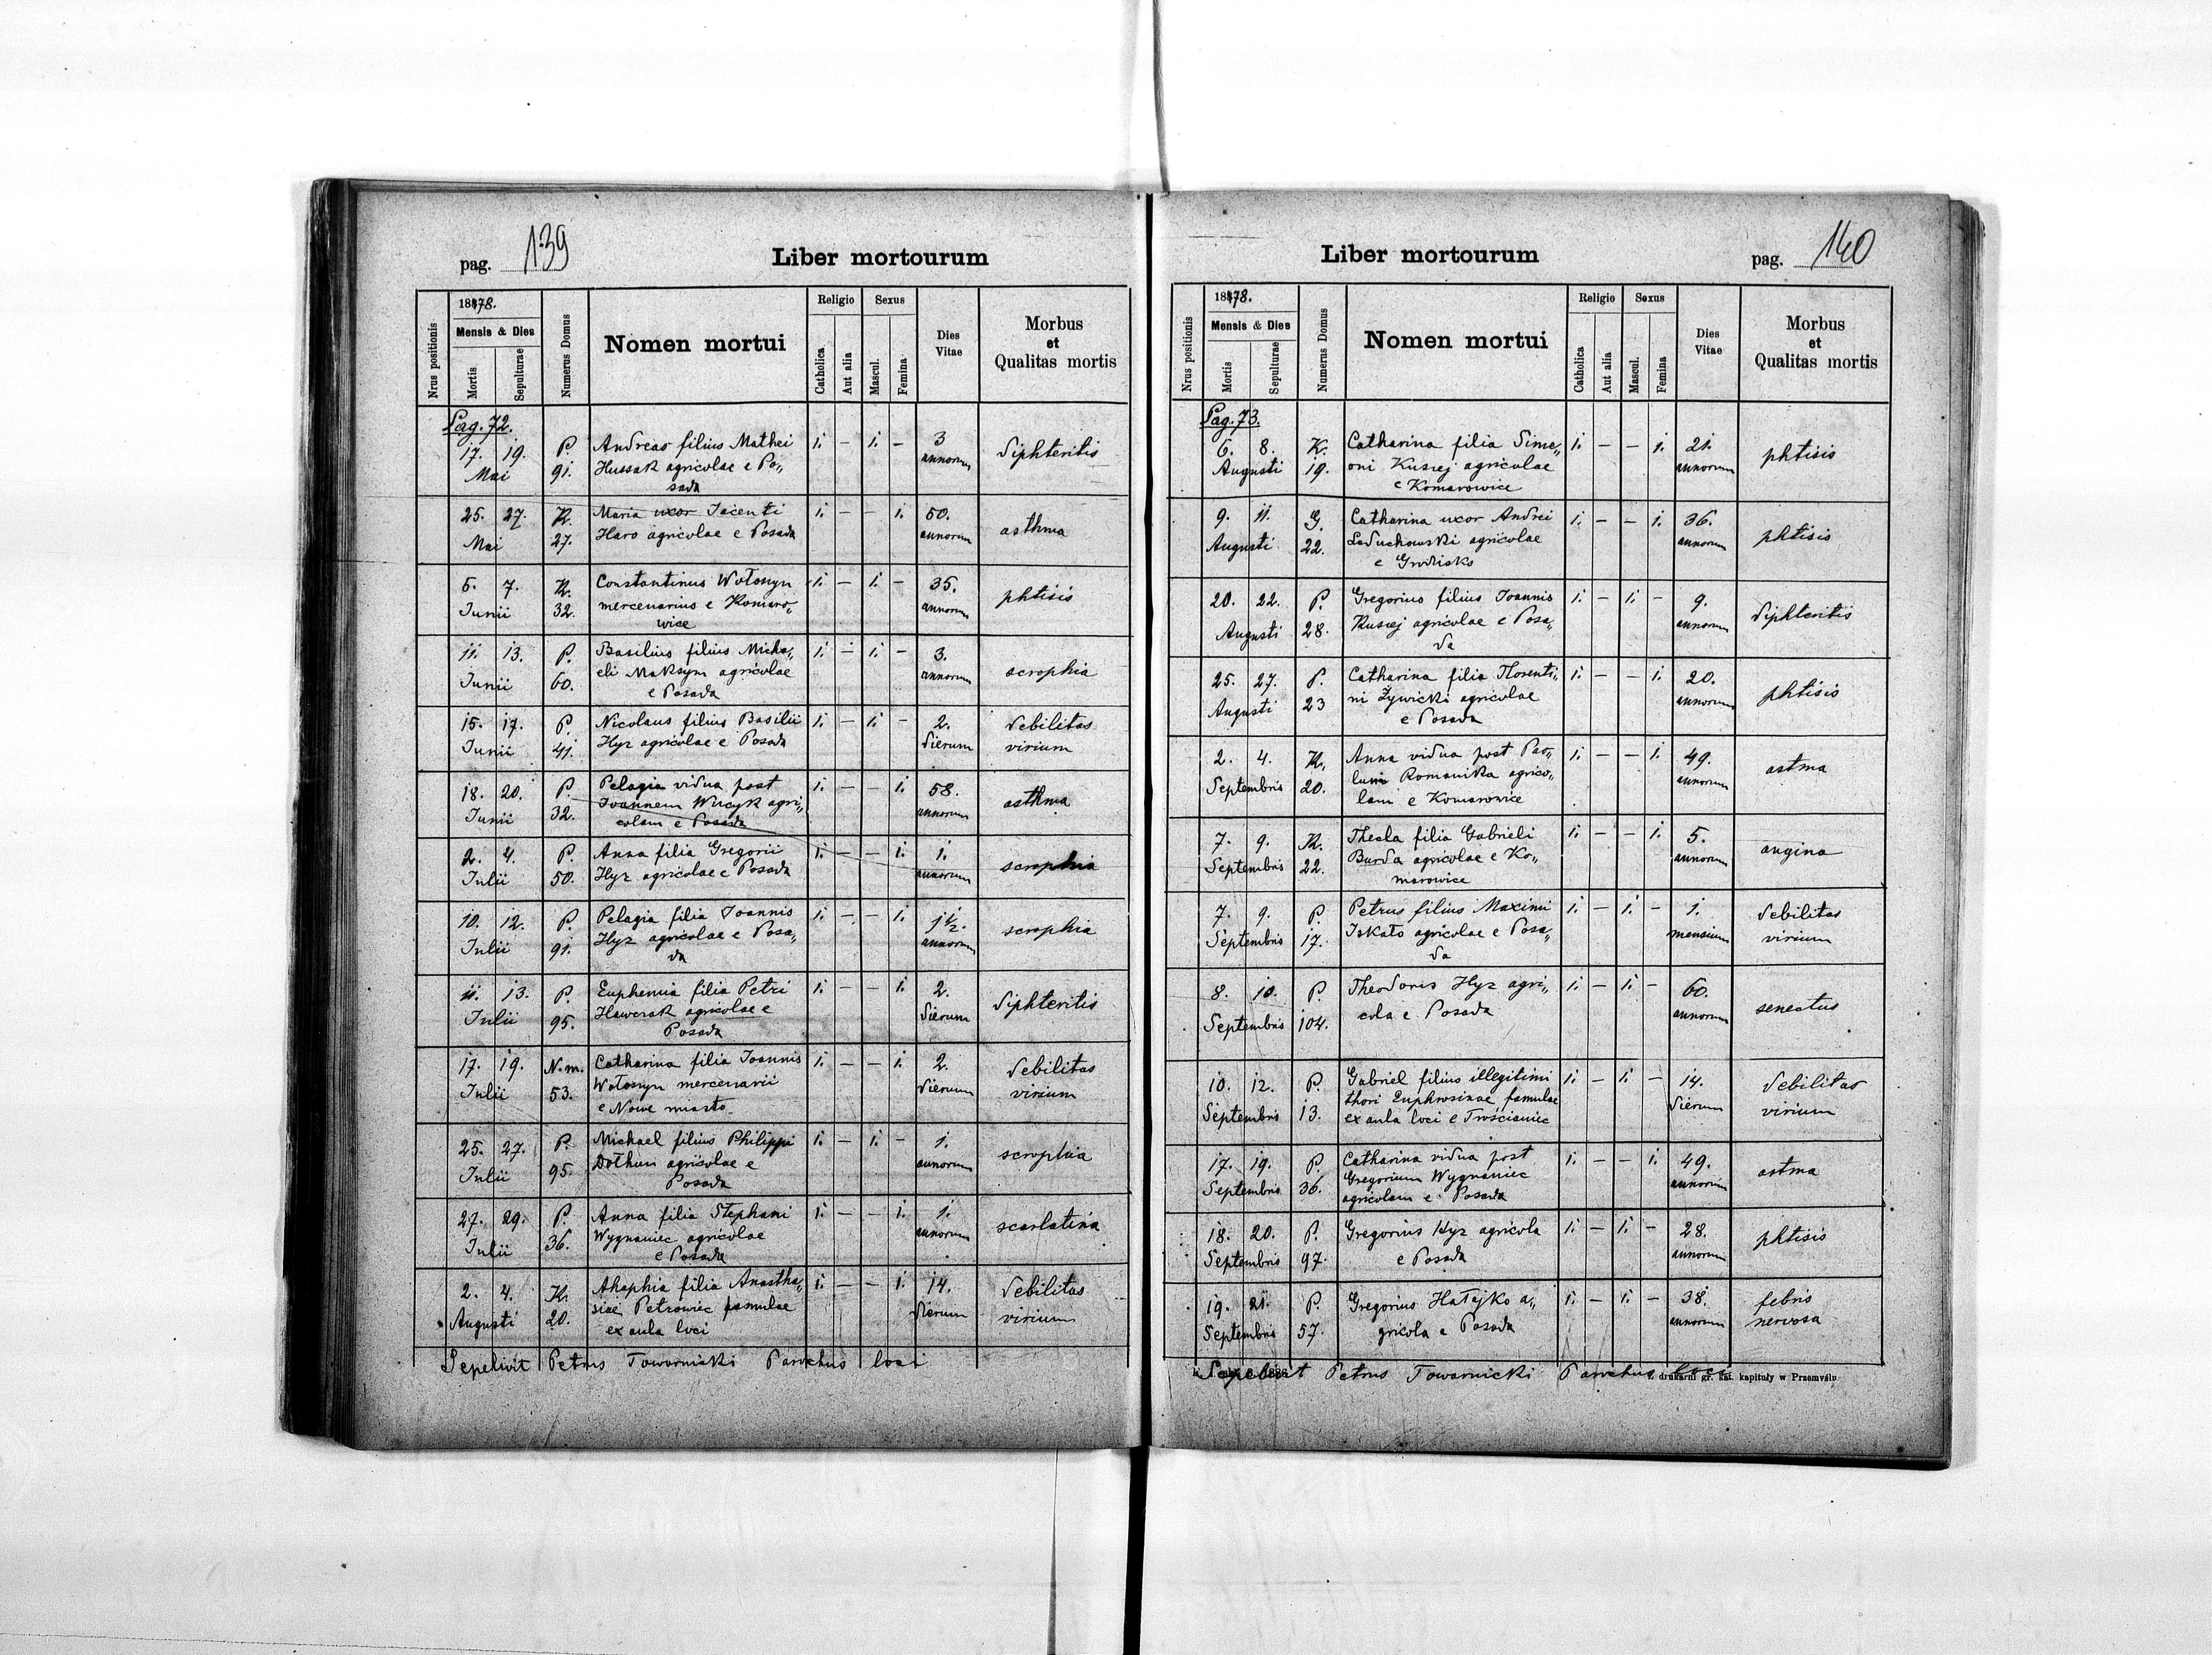 pag. 139
Liber mortourum
Nrus positionis
1878.
Mensis & Dies
Mortis
Sepulturae
Numerus Domus
Nomen mortui
Religio
Catholica
Aut alia
Sexus
Mascul.
Femina
Dies Vitae
Morbus
et
Qualitas mortis
Pag. 72.
17. 19. P. Andreas filius Mathei 1. – 1. – 3 diphteritis
Mai 91. Hussak agricolae e Po„ annorum
sada
25. 27. K. Maria uxor Jacenti 1. – – 1. 50. asthma
Mai 27. Haro agricolae e Posada annorum
5. 7. K. Constantinus Wołoszyn 1. – 1. – 35. phtisis
Junii 32. mercenarius e Komaro„ annorum
wice
11. 13. P. Basilius filius Micha„ 1. – 1. – 3. scrophia
Junii 60. eli Maksym agricolae annorum
e Posada
15. 17. P. Nicolaus filius Basilii 1. – 1. – 2. debilitas
Junii 41. Hyz agricolae e Posada dierum virium
18. 20. P. Pelagia vidua post 1. – – 1. 58. asthma
Junii 32. Joannem agri„ annorum
colam e Posada
2. 4. P. Anna filia Gregorii 1. – – 1. 1. scrophia
Julii 50. Hyz agricolae e Posada annorum
10. 12. P. Pelagia filia Joannis 1. – – 1. 1½. scrophia
Julii 91. Hyz agricolae e Posa„ annorum
da
11. 13. P. Euphemia filia Petri 1. – – 1. 2. diphteritis
Julii 95. Hawczak agricolae e dierum
Posada
17. 19. N.m. Catharina filia Joannis 1. – – 1. 2. debilitas
Julii 53. Wołoszyn mercenarii dierum virium
e Nowe miasto
25. 27. P. Michael filius Philippi 1. – 1. – 1. scrophia
Julii 95. Dothun agricolae e annorum
Posada
27. 29. P. Anna filia Stephani 1. – – 1. 1. scarlatina
Julii 36. Wygnaniec agricolae annorum
e Posada
2. 4. K. Ahaphia filia Anastha„ 1. – – 1. 14. debilitas
Augusti 20. siae Petrowiec famulae dierum virium
ex aula loci
Sepelivit Petrus Towarnicki Parochus loci
Liber mortourum
pag. 140
Nrus positionis
1878.
Mensis & Dies
Mortis
Sepulturae
Numerus Domus
Nomen mortui
Religio
Catholica
Aut alia
Sexus
Mascul.
Femina
Dies Vitae
Morbus
et
Qualitas mortis
Pag. 73.
6. 8. K. Catharina filia Sime„ 1. – – 1. 21. phtisis
Augusti 19. oni Kusiej agricolae annorum
e Komarowice
9. 11. G. Catharina uxor Andrei 1. – – 1. 36. phtisis
Augusti 22. Leduchowski agricolae annorum
e Grodisko
20. 22. P. Gregorius filius Joannis 1. – 1. – 9. diphteritis
Augusti 28. Kusiej agricolae e Posa„ annorum
da
25. 27. P. Catharina filia Florenti„ 1. – – 1. 20. phtisis
Augusti 23 ni Żywicki agricolae annorum
e Posada
2. 4. K. Anna vidua post Pau„ 1. – – 1. 49. astma
Septembris 20. lum Romanika agrico„ annorum
lam e Komarowice
7. 9. K. Thecla filia Gabrieli 1. – – 1. 5. angina
Septembris 22. Burda agricolae e Ko„ annorum
marowice
7. 9. P. Petrus filius Maximi 1. – 1. – 1. debilitas
Septembris 17. Iskało agricolae e Posa„ mensium virium
da
8. 10. P. Theodoris Hyz agri„ 1. – 1. – 60. senectus
Septembris 104. cola e Posada annorum
10. 12. P. Gabriel filius illegitimi 1. – 1. – 14. debilitas
Septembris 13. thori Euphrosinae famulae dierum virium
ex aula loci e Trościaniec
17. 19. P. Catharina vidua post 1. – – 1. 49. astma
Septembris 36. Gregorium Wygnaniec annorum
agricolam e Posada
18. 20. P. Gregorius Hyz agricola 1. – 1. – 28. phtisis
Septembris 97. e Posada annorum
19. 21. P. Gregorius Hałajko a„ 1. – 1. – 38. febris
Septembris 57. gricola e Posada annorum nervosa
Sepelivit Petrus Towarnicki Parochus loci
drukarni gr. kat. kapituły w Przemyślu